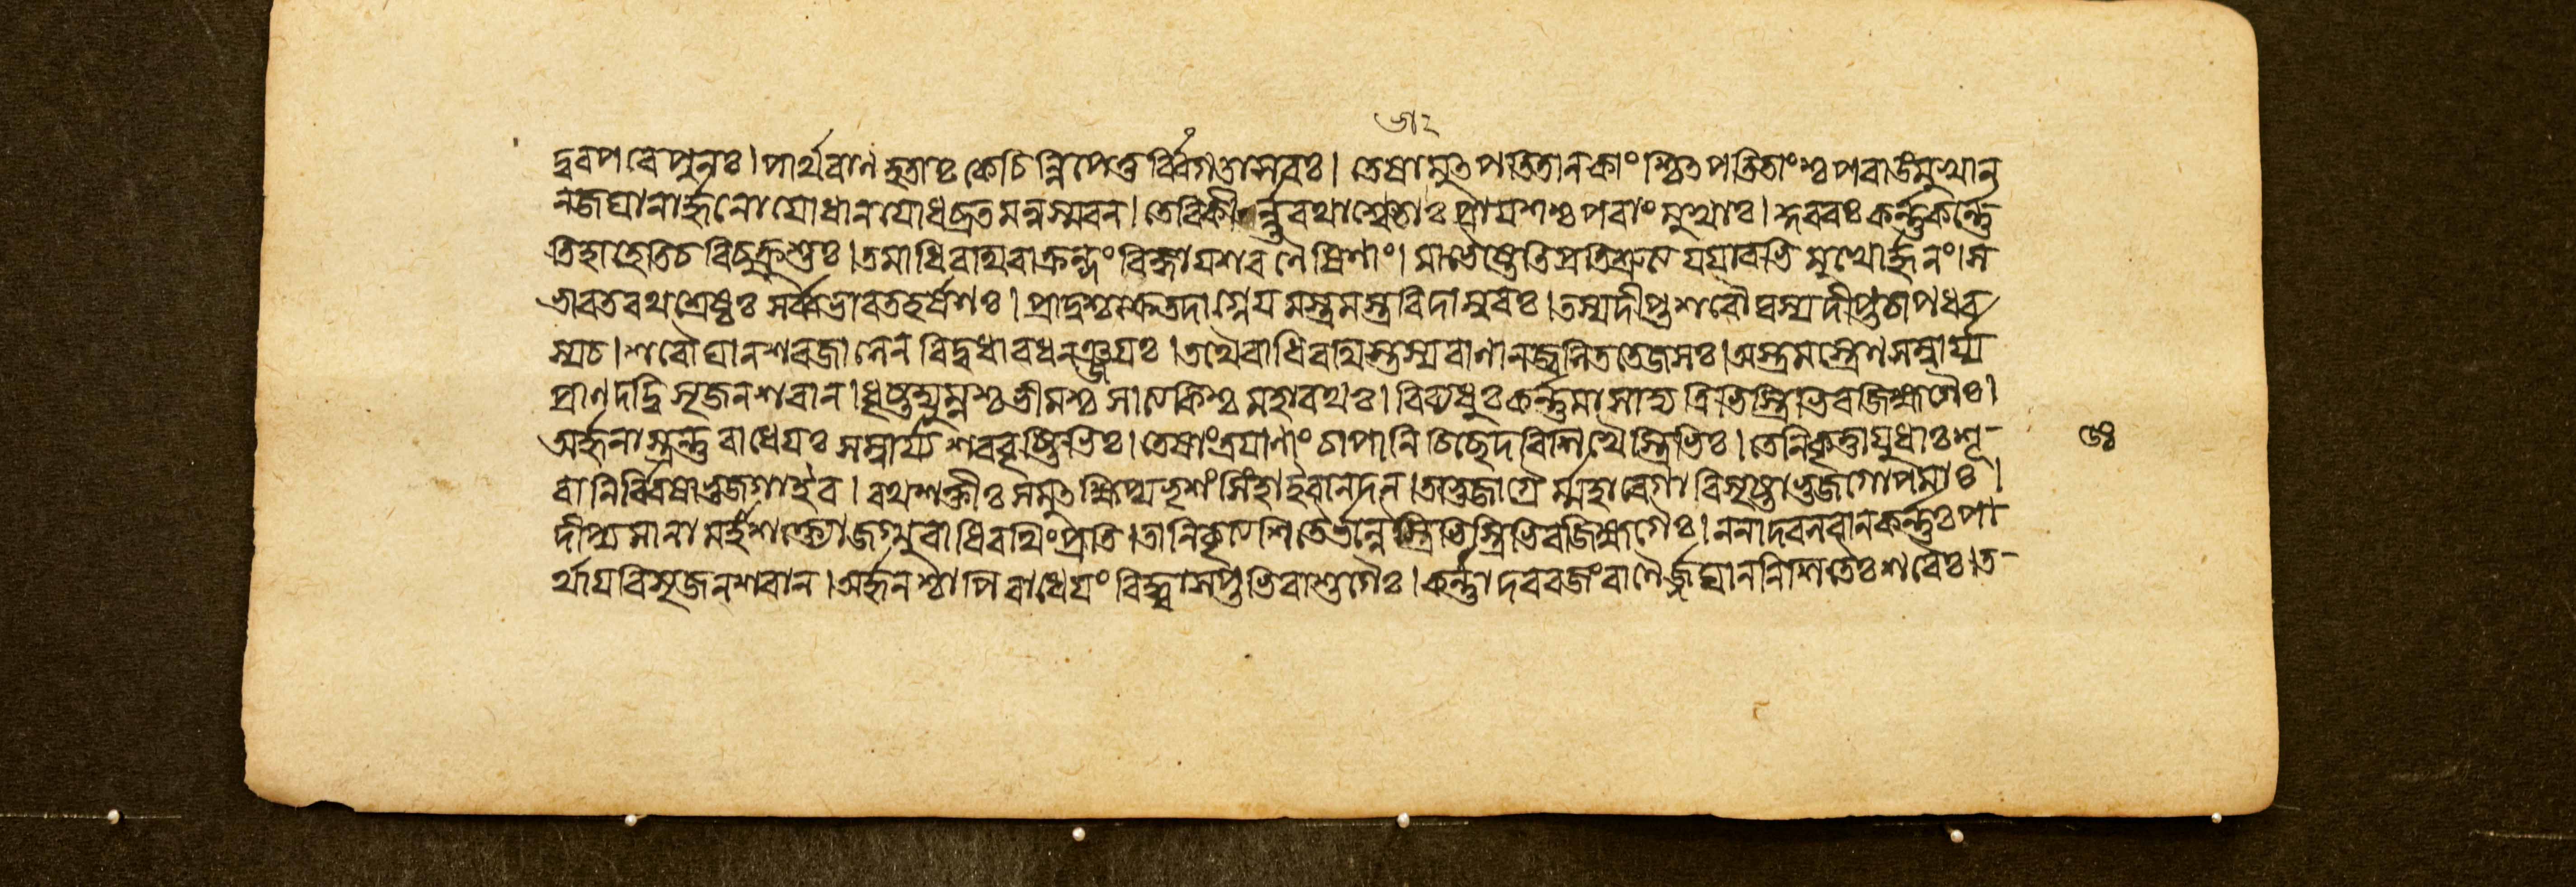 ৬৷২
দ্রুবপরে পুনঃ। পার্থবাণহতাঃ কেচিন্নিপেতুর্ব্বিগতাসবঃ। তেষামুত্পততানকাংশ্চিতপতিতাংশ্চ পরাঙমুখান
নজঘানার্জ্জুনো যোধানযোধব্রতমনুস্মরন। তেবিকীর্ন্নরথাশ্বেভাঃ প্রাযশশ্চ পরাংমুখাঃ। কুরবঃ কর্ন্নকর্ন্নে
তিহাহেতিচ বিচুক্রুশুঃ। তমাধিরথিরাক্রন্দং বিজ্ঞাযশরণৈষিণাং। মাভৈষ্টেতিপ্রতিশ্রুত্যযযাবভিমুখোর্জ্জুনং। স
ভারতরথশ্রেষ্ঠঃ সর্ব্বভারতহর্ষণঃ। প্রাদুশ্চক্রেতদাগ্নেযমস্ত্রমস্ত্রবিদাম্বরঃ। তস্যদীপ্তশরৌঘস্যদীপ্তচাপধর
স্যচ। শরৌঘানশরজালেন বিদুধাবধনঞ্জযঃ। তথৈবাধিরথিস্তস্যবাণানজ্বলিততেজসঃ। অস্ত্রমস্ত্রেণসম্বার্য্য
প্রাণদদ্বিসৃজনশরান। ধৃষ্টদ্যুম্নশ্চভীমশ্চ সাত্যকিশ্চ মহারথঃ। বিব্যধুঃকর্ন্নমাসাদ্য ত্রিভিস্ত্রিভিরজিহ্মগৈঃ।
অর্জ্জুনাস্ত্রন্তু রাধেযঃ সম্বার্য্য শরবৃষ্টিভিঃ। তেষাংত্রযাণাং চাপানি চিচ্ছেদবিশিখৈস্ত্রিভিঃ। তেনিকৃত্তাযুধাঃশূ-
রানির্ব্বিষাভুজগাইব। রথশক্তীঃ সমুতক্ষিপ্যভৃশং সিংহাইবানদন। তাভুজাগ্রৈর্ম্মহাবেগাবিসৃষ্টাভুজগোপমাঃ।
দীপ্যমানামহাশক্ত্যোজগ্মুরাধিরথিংপ্রতি। তানিকৃত্যশিতৈর্ভ্ভল্লৈস্ত্রিভিস্ত্রিভিরজিহ্মগৈঃ। ননাদবলবানকর্ন্নঃপা-
র্থাযবিসৃজনশরান। অর্জ্জুনশ্চাপি রাধেযং বিদ্ধ্বাসপ্তভিরাশুগৈঃ। কর্ন্নাদবরজংবাণৈর্জ্জঘাননিশিতৈঃশরৈঃ। ত-